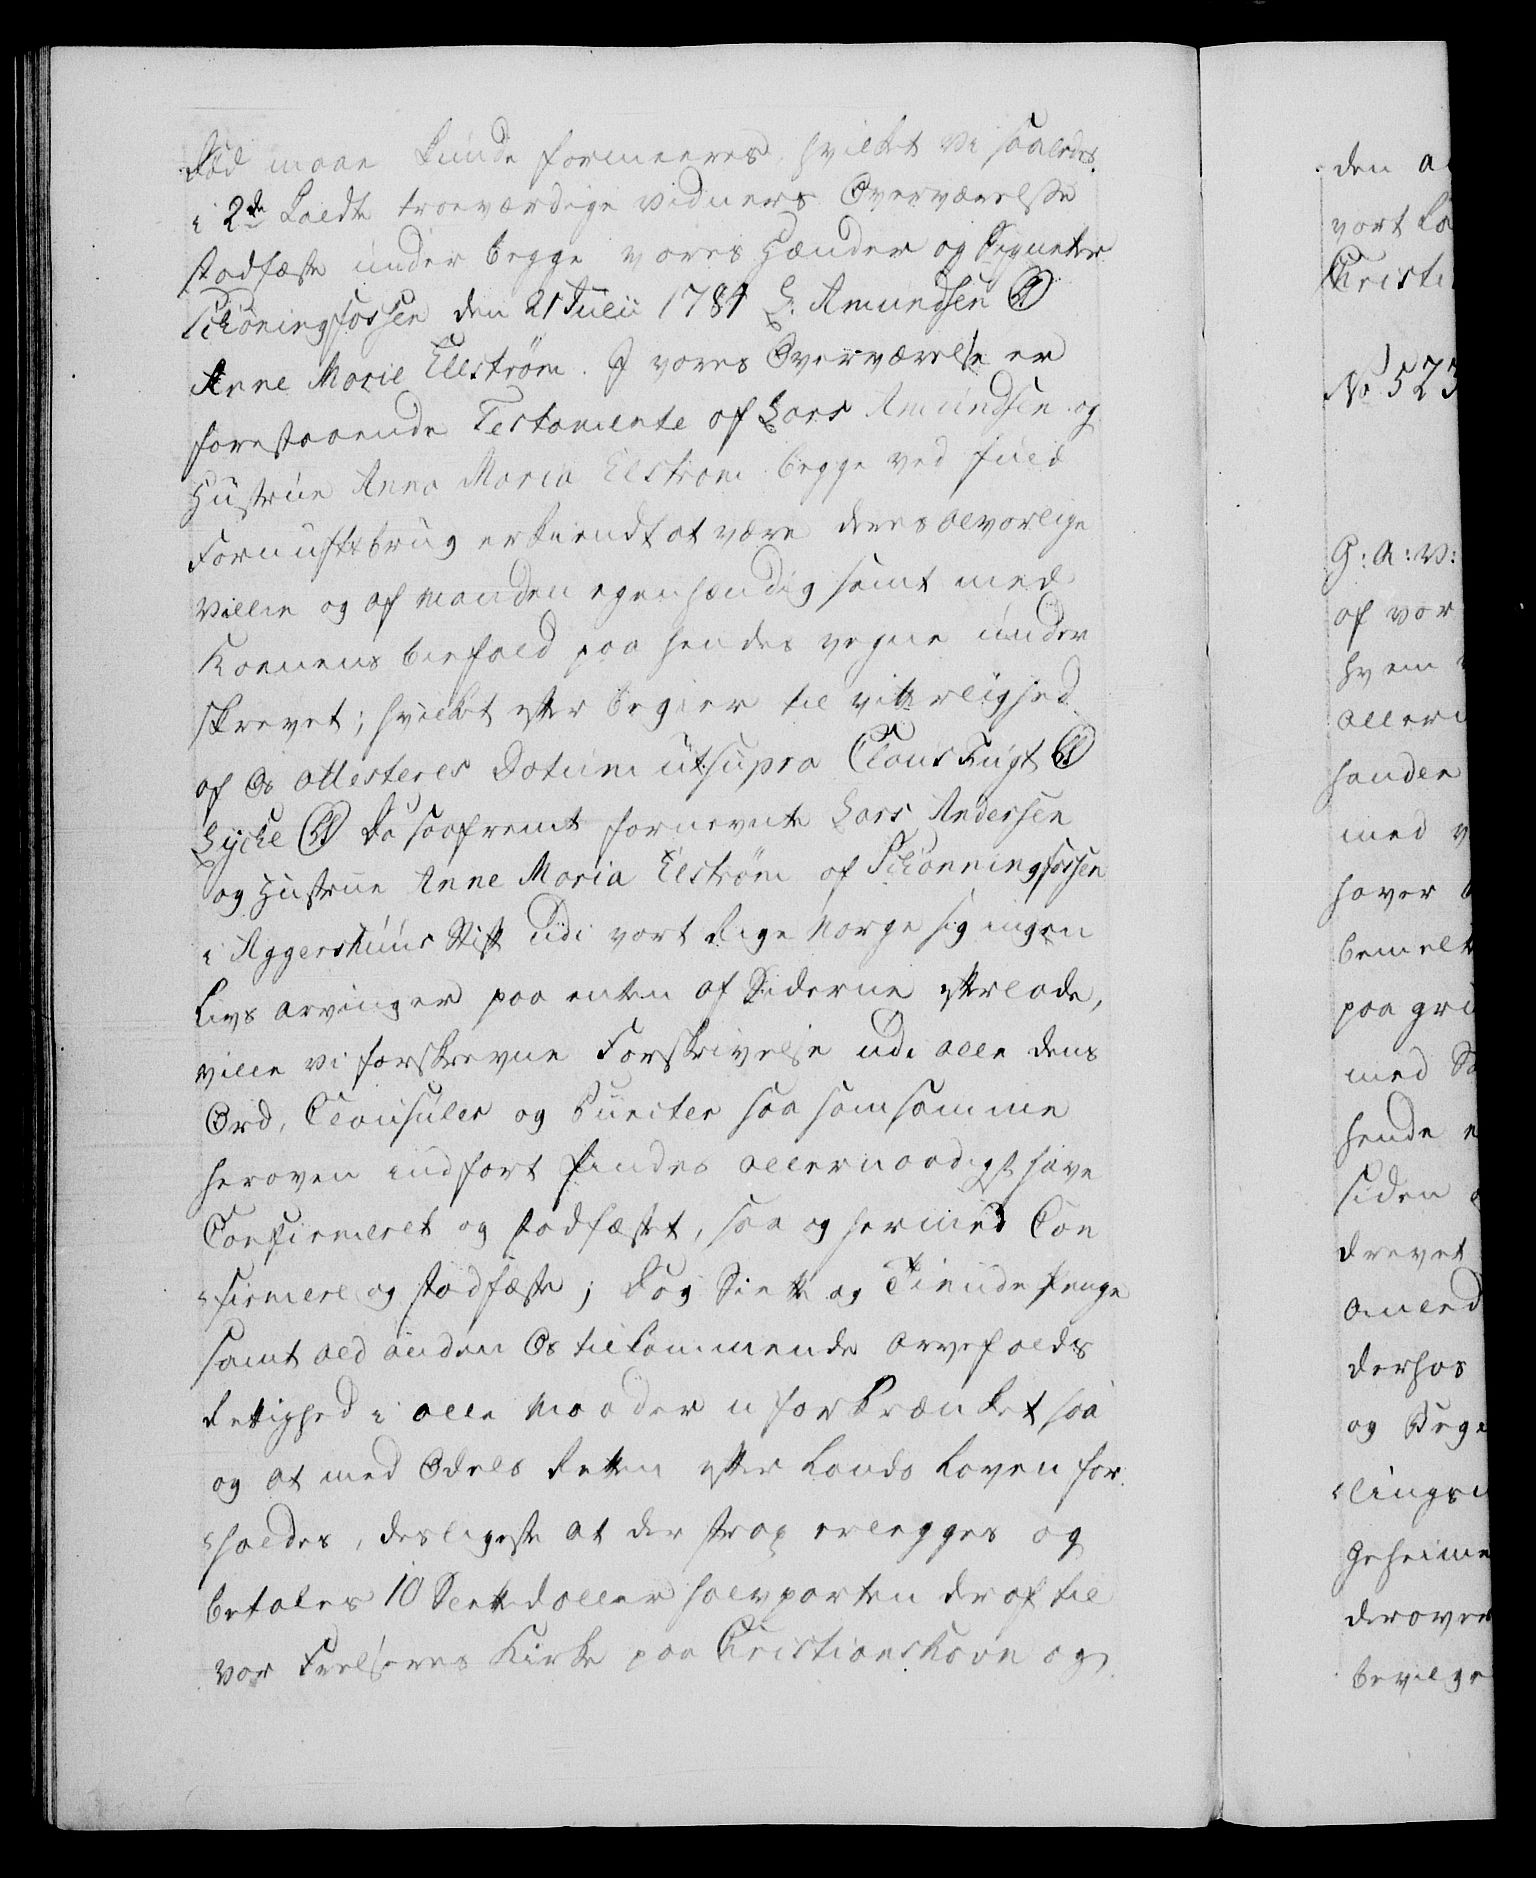 Død maae kunde formeenes, hvilket vi saaledes
i 2de kaldte troeværdige vidners Overværelse
stadfæste under begge vores Hænder og Signeter
Schøningsfossen den 21 Julii 1784 L. Amundsen (LS)
Anne Marie Ellstrøm. I vores Overværelse er
forestaaende Testamente af Lars Amundsen og
Hustrue Anna Maria Elstrøm begge ved fuld
Fornuftsbrug erkiendt at være deres alvorlige
villie og af Manden egenhændig samt med
Konens biefald paa hendes vegne under
skrevet; hvilket efter begiær til vitterlighed
af Os attesteres Datum utsupra Claus Fugt (LS)
Lycke (LS) Da saafremt fornevnte Lars Andersen
og Hustrue Anne Maria Elstrøm af Schønningsfossen
i Aggershuus Stift udi vort Rige Norge sig ingen
Livs arvinger paa enten af Siderne efterlade,
ville vi forskrevne Forskrivelse udi alle dens
Ord, Clausuler og Puncter saa som samme
heroven indført findes allernaadigst have
Confirmeret og stadfæstet, saa og hermed Con
firmere og stadfæste; dog Siette og Tiende Penge
samt ald anden Os tilkommende arvefalds
Rettighed i alle Maader uforkrænket saa
og at med Odels Retten efter Lands Loven for
holdes, desligeste at der strax erlegges og
betales 10 Slettedaller halvparten deraf til
vor Frelseres Kirke paa Christianshavn og
den a
vort
Christi
No 523
G: A: V:
af vor
hvem
allern
handen
med v
haver
bemelt
paa gru
med
hende
siden
drevet
anled
derhos
og Bege
lings
Geheime
derover
bevilge